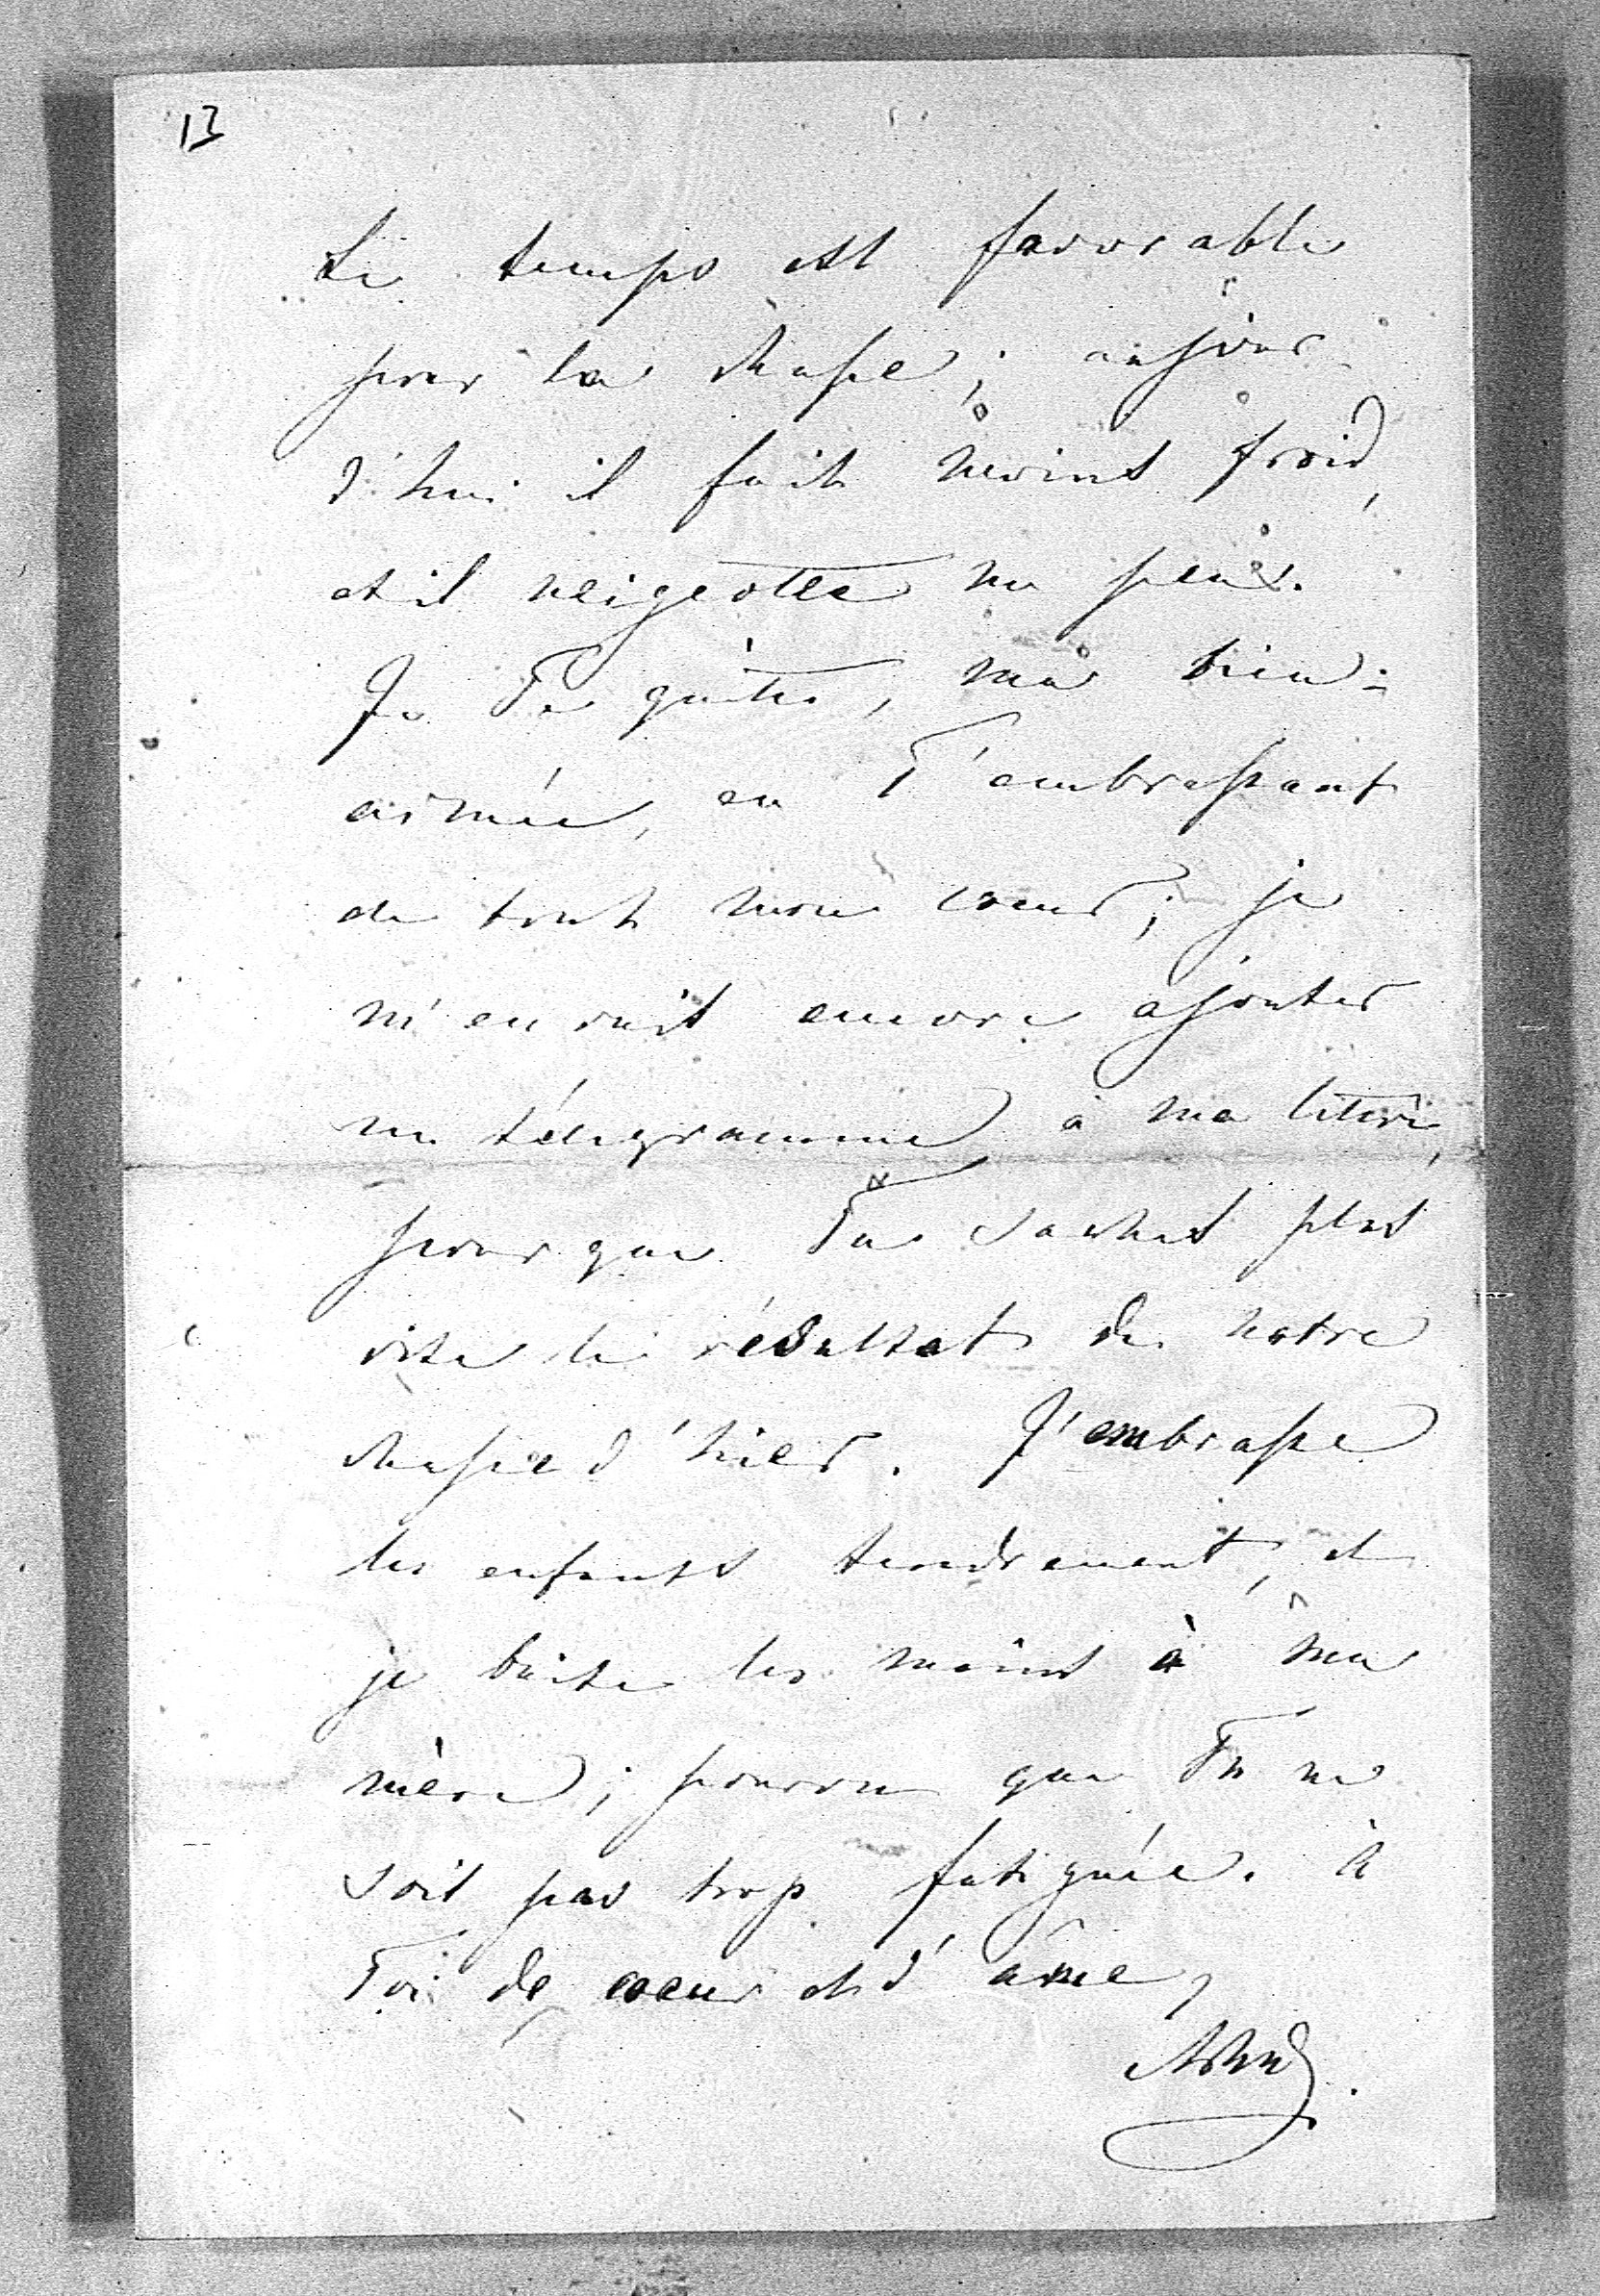 13
Le temps est favorable
pour la chasse; aujour-
d'hui il fait moins froid,
et il neigeotte un peu.
Je Te quitte, ma bien-
aimée, en T'embrassant
de tout mon coeur; je
m'en vais encore ajouter
un télégramme à ma lettre,
pour que Tu saches plus
vite le résultat de notre
chasse d'hier. J'embrasse
les enfants tendrement, et
je baise les mains à ma
mère; pourvu que Tu ne
sois pas trop fatiguée. à
Toi de coeur et d'âme,